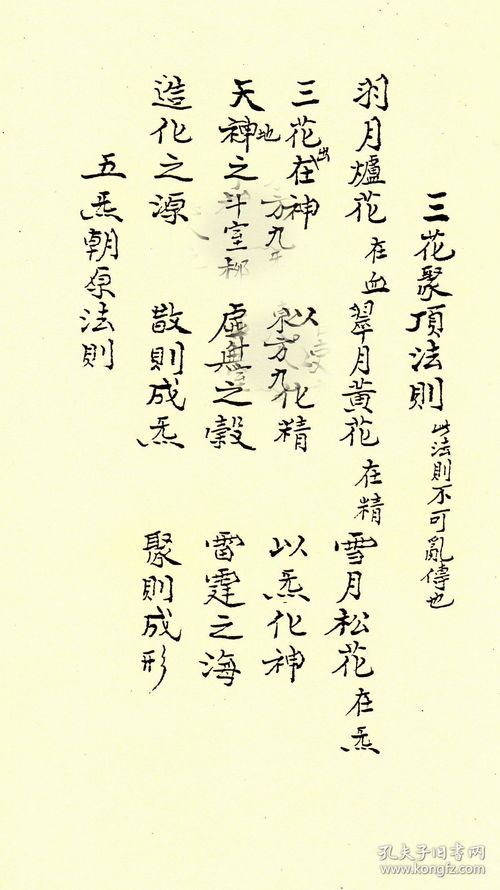 三花聚頂法則 此法則不可亂傳也
羽月櫨花在血 翠月黃花在精 雪月松花在炁
三花出在神 以化精 以炁化神
天地神之斗室 虛無之穀 雷霆之海
造化之源 散則成炁 聚則成形
五炁朝原法則
東方九
方九
孔夫子旧书网
www.kongfz.com